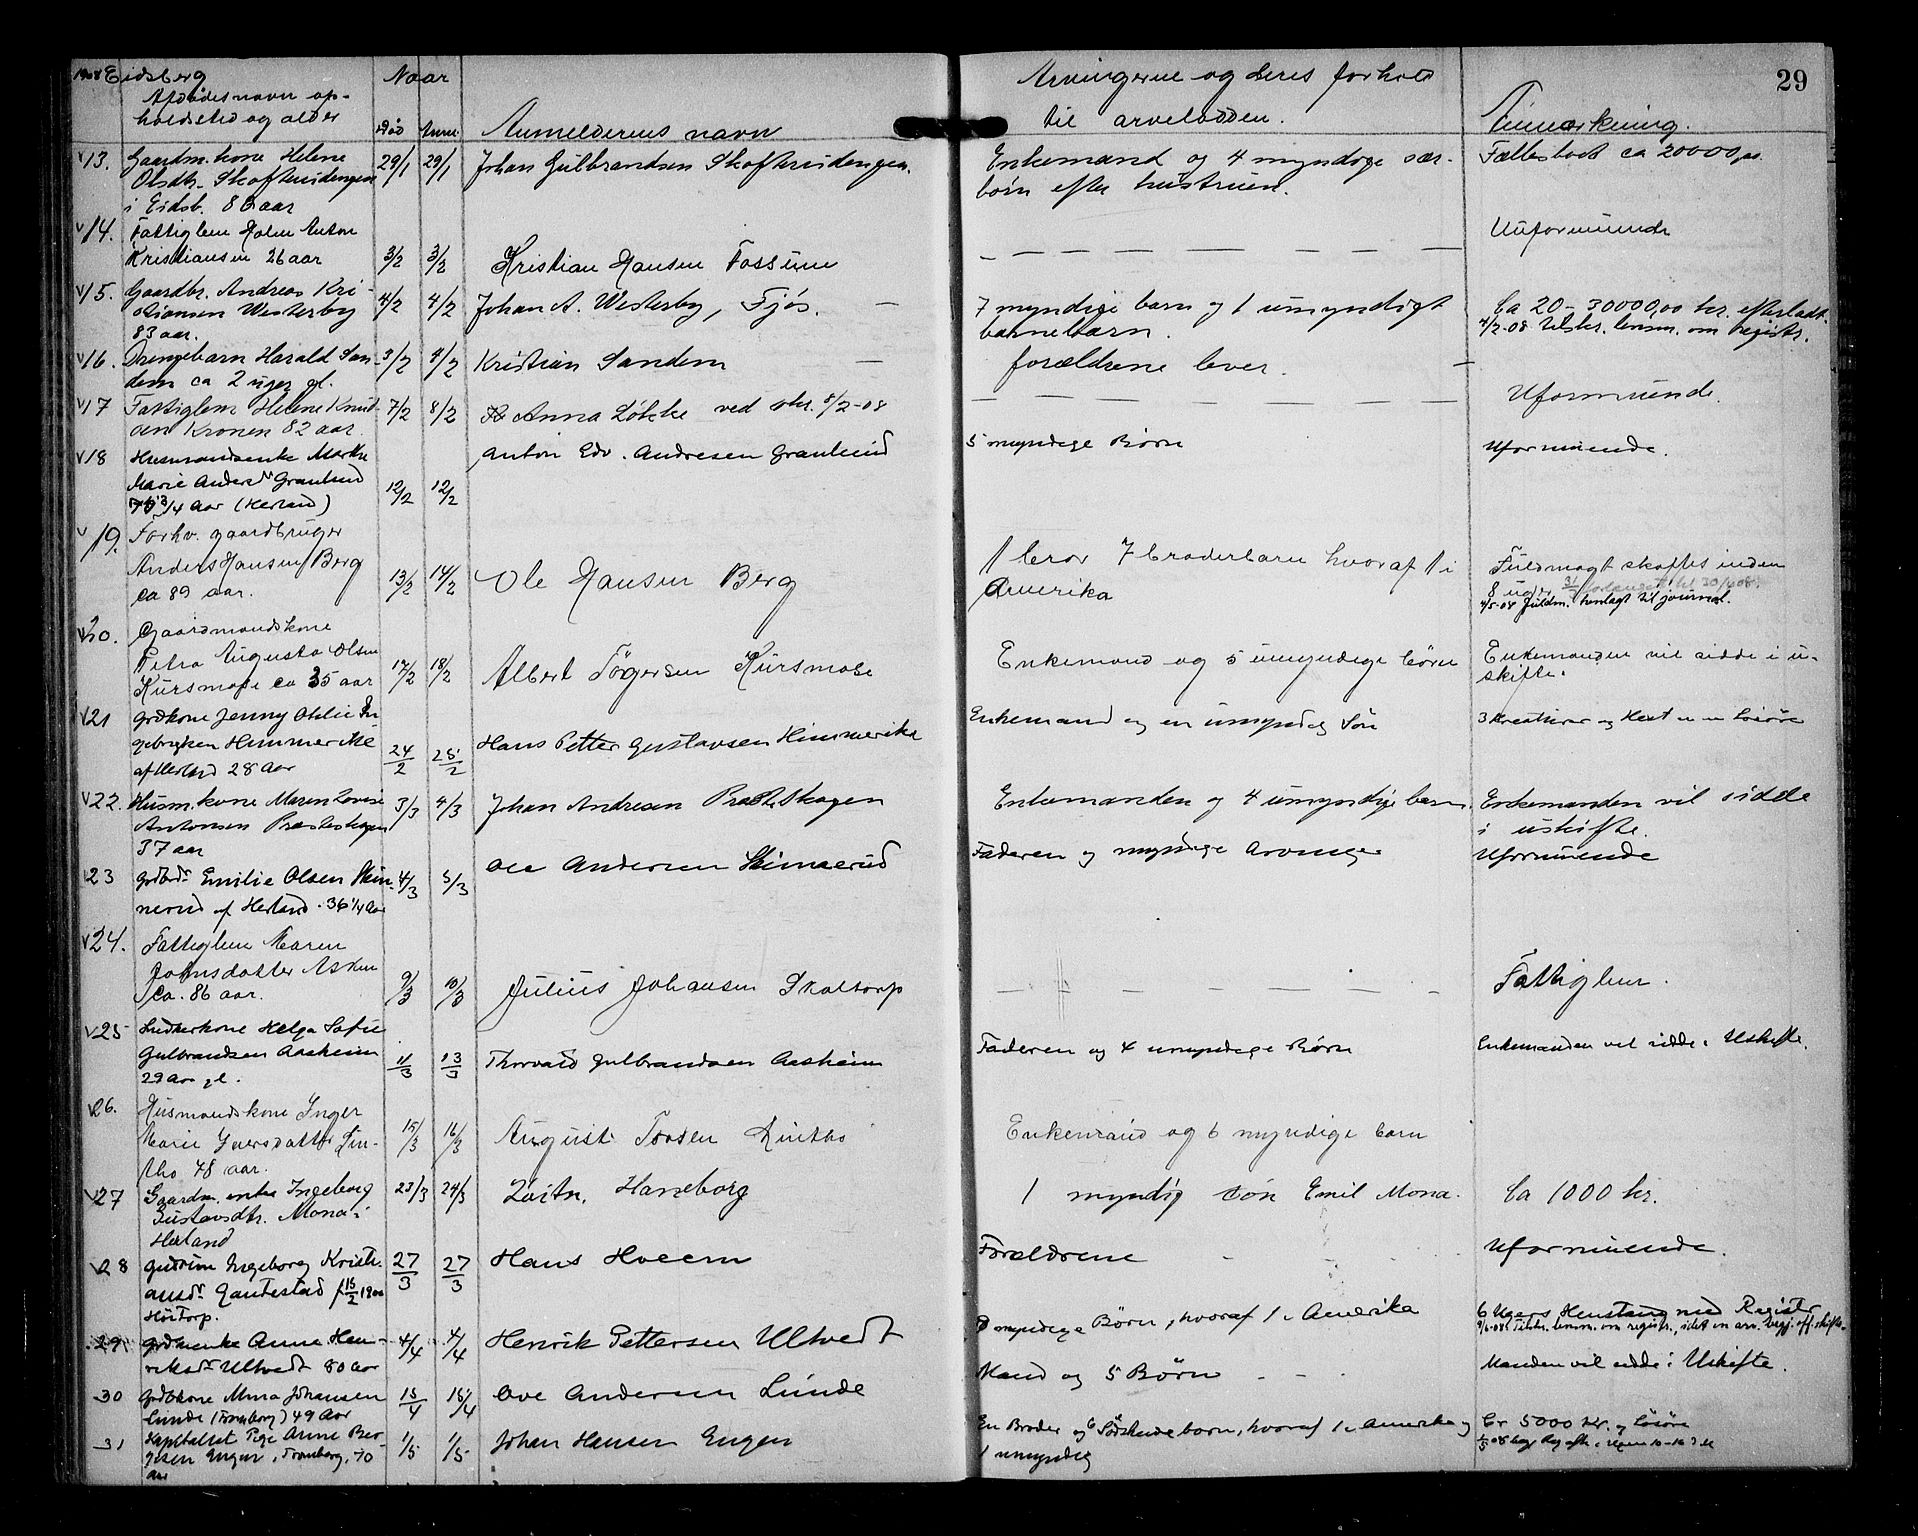 1908 Eidsberg
Naar
Arvingerne og deres forhold
29
Afdødes navn op-
holdssted og alder
Død
Anm.
Anmelderens navn
til arveladeren.
Anmærkning.
13. Gaardm. kone Helene
Olsdtr. Skofterudengen
i Eidsb. 86 aar
29/1 29/1
Johan Gulbrandsen Skofterudengen.
Enkemand og 4 myndige sær-
børn efter hustruen.
Fællesboet ca 20000,00.
14. Fattiglem Anton
Kristiansen 26 aar
3/2 3/2
Kristian Hansen Fossum
— — — — — — —
Uformuende
15. Gaardbr. Andreas Kri-
stiansen Westerby
83 aar.
4/2 4/2
Johan A. Westerby, Fjøs. —
7 myndige barn og 1 umyndigt
barnebarn.
Ca 20-30000,00 kr. efterladt.
4/2-08 tilskr. lensm. om registr.
16. Drengebarn Harald San-
dem ca 2 uger gl.
3/2 4/2
Kristian Sandem —
forældrene lever. —
17 Fattiglem Helene Knud-
sen Kronen 82 aar.
7/2 8/2
Anna Løkke ved skr. 8/2-08
— — — — — — —
Uformuende.
18 Husmandsenke Marthe
Marie Andersdr Granlund
3/4 Aar (Herland)
12/2 12/2
Anton Edv. Andresen Granlund
5 myndige Børn
Uformuende.
19. Forhv. gaardbruger
Anders Hansen Berg
ca 89 aar.
13/2 14/2
Ole Hansen Berg
1 bror 7 broderbarn hvoraf 1 i
Amerika
Fuldmagt skaffes inden
8 uger
4/5-08 Fuldm. henlagt til journal.
20. Gaardmandskone
Petra Augusta Olsen
Kursmose ca 35 aar
17/2 18/2
Albert Tøgersen Kursmose
Enkemand og 5 umyndige børn
Enkemanden vil sidde i u-
skifte.
21 Grdkone Jenny Othlie In
gebrigtsen Himmerike
af Herland 28 Aar
24/2 25/2
Hans Petter Gustavsen Himmerike
Enkemand og en umyndig Søn
3 Kreaturer og Hest n n Løsøre
22. Husm. kone Maren Lovise
Antonsen Presteskogen
37 aar
3/3 4/3
Johan Andresen Presteskogen
Enkemanden og 4 umyndige barn.
Enkemanden vil sidde
i uskifte.
23 Grdbdr Emilie Olsen Skin-
nerud af Herland. 36 1/4 Aar
4/3 5/3
Ole Andersen Skinnerud
Faderen og myndige Arvinger
Uformuende
24. Fattiglem Maren
Johnsdatter Asken
ca. 86 aar.
9/3 10/3
Julius Johansen Skaltorp
— — — — — — —
Fattiglem.
25 Helga Sofie
Gulbrandsen Aasheim
29 Aar gl.
11/3 13/3
Thorvald Gulbrandsen Aasheim
Faderen og 4 umyndige Børn
Enkemanden vil sidde i Uskifte.
26. Husmandskone Inger
Marie Iversdatter Lin-
tho 48 aar.
15/3 16/3
August Lintho
Enkemand og 6 myndige barn
27 Gaardm. enke Ingeborg
Gustavsdtr. Mona i
Herland
23/3 24/3
Løitn. Haneborg
1 myndig søn Emil Mona.
Ca 1000 kr.
28 Gudrun Ingeborg Kristi-
ansdr. f 15/2 1900
27/3 27/3
Hans Hveem
Forældrene
Uformuende.
29. Grdmenke Anne Hen-
riksdr Ultvedt 80 Aar
4/4 4/4
Henrik Pettersen Ultvedt
myndige Børn, hvoraf 1 i Amerika
6 Ugers Henstand med Registr
30 Grdbkone Mina Johansen
Lunde (Tromborg) 49 Aar
15/4 15/4
Ove Andersen Lunde
Mand og 5 Børn
Manden vil sidde i Uskifte.
31 Pige Anne Bir-
gitsen Engen, Tromborg, 70
Aar
1/5 1/5
Johan Hansen Engen
En Broder og 6 Sødskendebørn, hvoraf 1 i Amerika og
1 umyndig
Ca 5000 Kr. og Løsøre